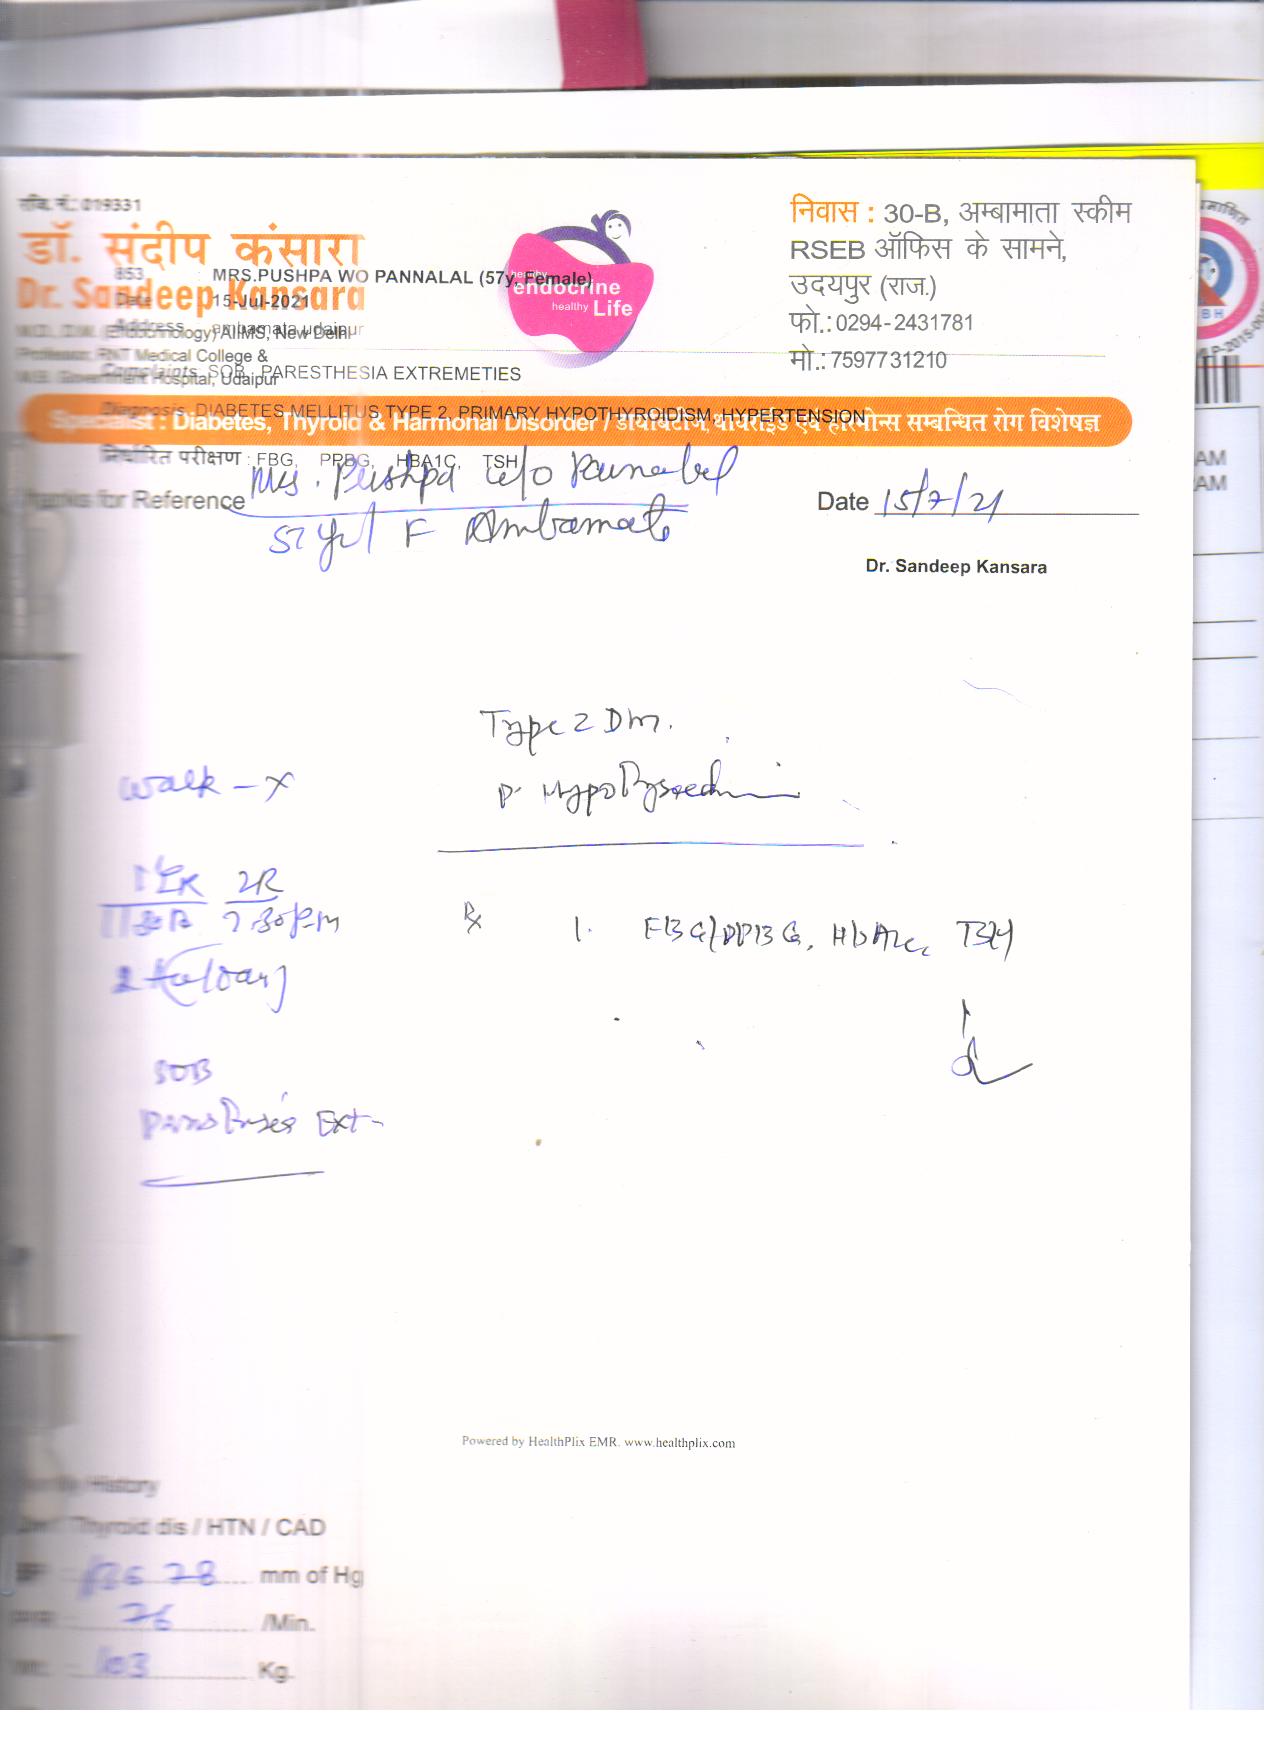 रजि. नं.: 019331
डॉ. संदीप कंसारा
Dr. Sandeep Kansara
M.D., D.M. (Endocrinology) AIIMS, New Delhi
Professor, RNT Medical College &
M.B. Government Hospital, Udaipur
healthy
endocrine
healthy Life
निवास : 30-B, अम्बामाता स्कीम
RSEB ऑफिस के सामने,
उदयपुर (राज.)
फो.: 0294-2431781
मो.: 7597731210
853 MRS.PUSHPA WO PANNALAL (57y, Female)
Date 15-Jul-2021
Address ambamata udaipur
Complaints SOB, PARESTHESIA EXTREMETIES
Diagnosis DIABETES MELLITUS TYPE 2, PRIMARY HYPOTHYROIDISM, HYPERTENSION
Specialist : Diabetes, Thyroid & Harmonal Disorder / डायबिटीज, थायराईड एवं हारमोन्स सम्बन्धित रोग विशेषज्ञ
निर्धारित परीक्षण : FBG, PPBG, HBA1C, TSH
Thanks for Reference Mrs. Pushpa w/o Pannalal
57 yr/ F Ambamata
Date 15/7/21
Dr. Sandeep Kansara
Type 2 DM.
P. Hypothyroidism
Walk - X
2R
7.30 pm
Rx 1. FBG/PPBG, HbA1c, TSH
SOB
Ext-
Powered by HealthPlix EMR. www.healthplix.com
Family History
Thyroid dis / HTN / CAD
BP 136 78 mm of Hg
76 /Min.
103 Kg.
AM
AM
BH